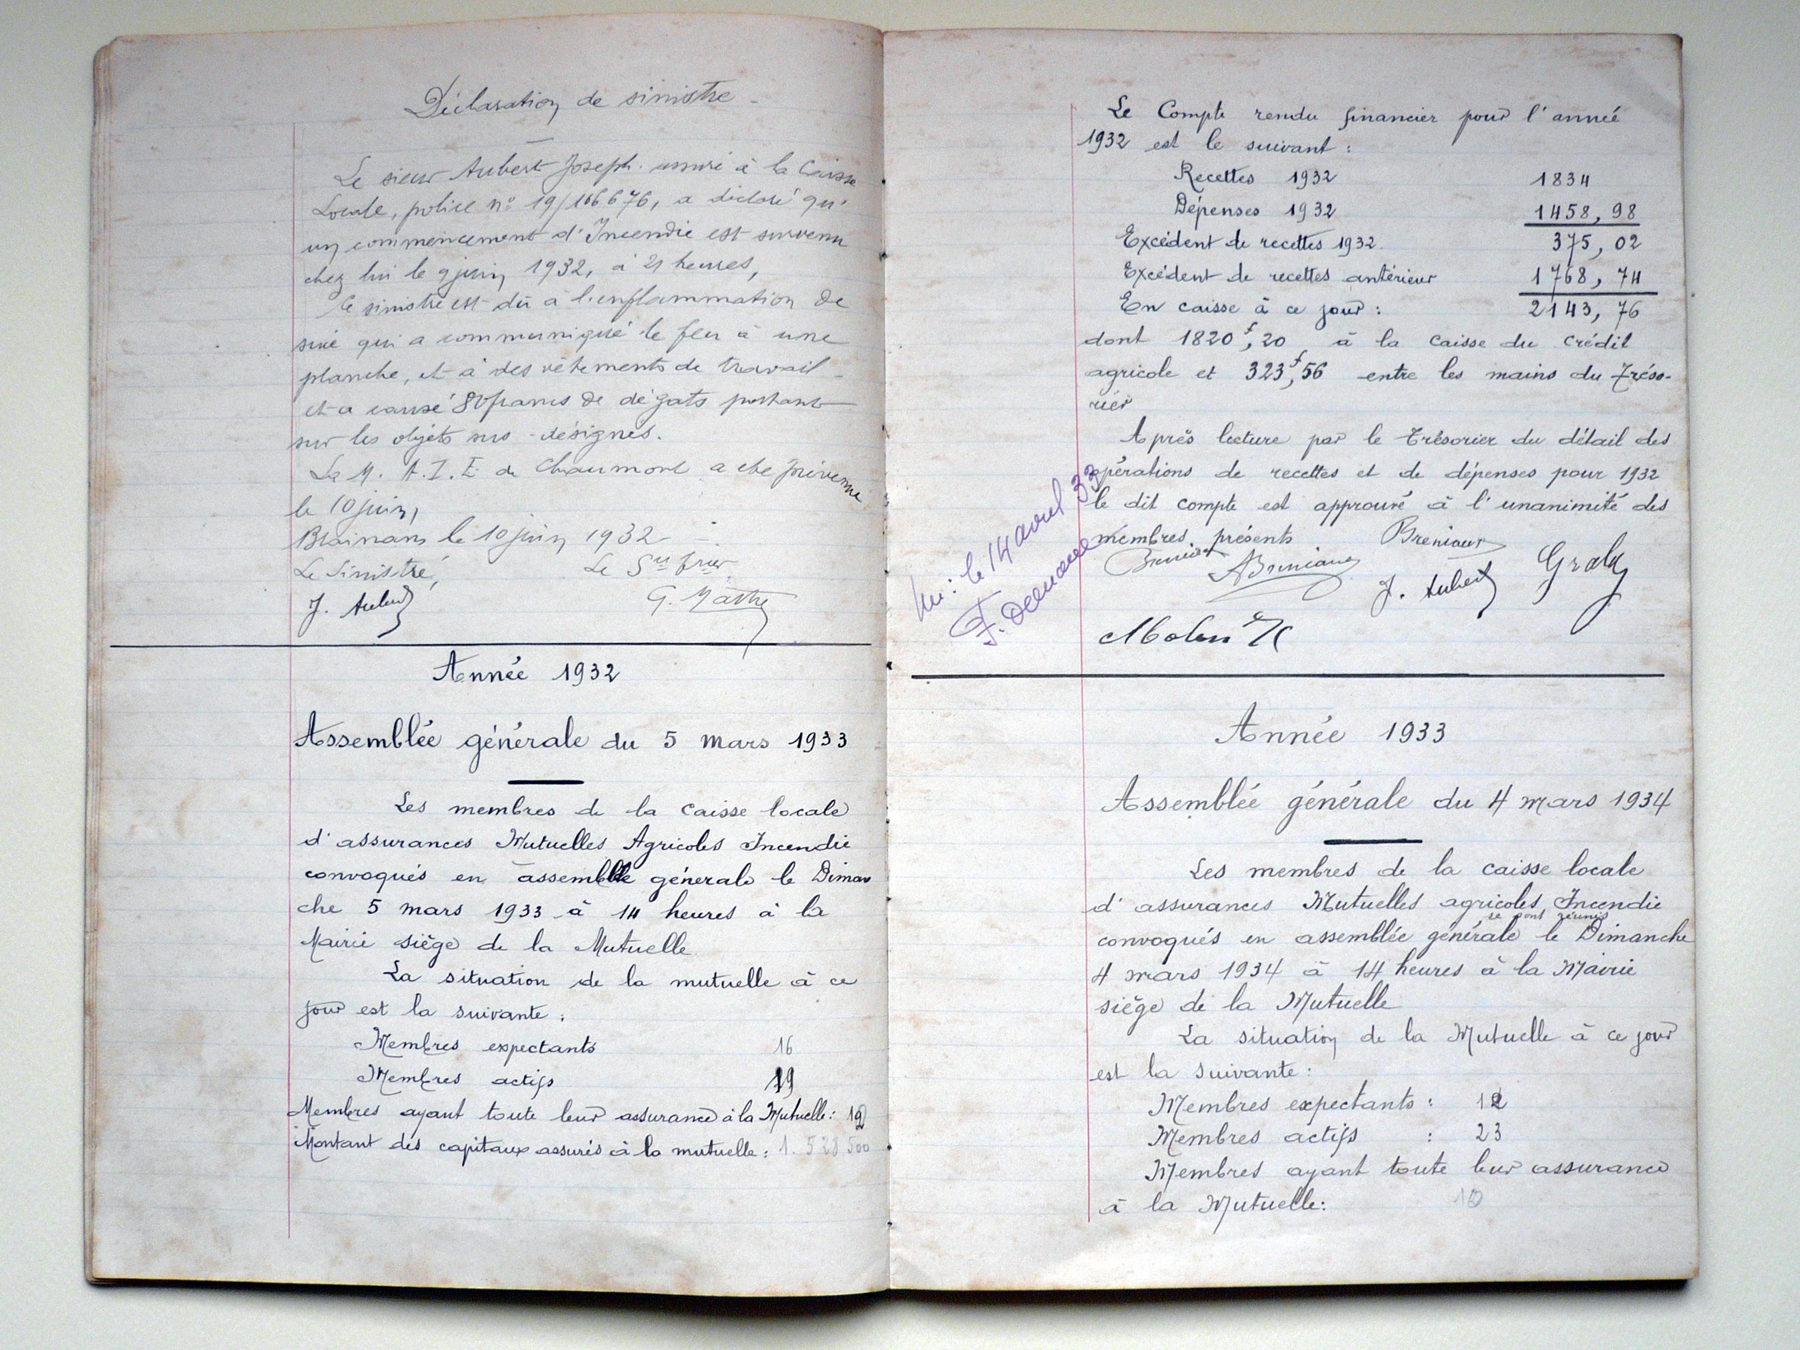 Déclaration de sinistre
Le sieur Aubert Joseph assuré à la Caisse
Locale, police n° 19/166676, a déclaré qu'
un commencement d'Incendie est survenu
chez lui le 9 juin 1932, à 21 heures,
le sinistre est dû à l'inflammation de
qui a communiqué le feu à une
planche, et à des vêtements de travail
et a causé 80 francs de dégats portant
sur les objets sus-désignés.
La M. A. I. E. de Chaumont a été prévenue
le 10 juin,
Brainans le 10 juin 1932
Le Sinistré, Le
J. Aubert G.
Année 1932
Assemblée générale du 5 mars 1933
Les membres de la caisse locale
d'assurances Mutuelles Agricoles Incendie
convoqués en assemblée générale le Diman
che 5 mars 1933 à 14 heures à la
Mairie siège de la Mutuelle
La situation de la mutuelle à ce
jour est la suivante :
Membres expectants 16
Membres actifs 19
Membres ayant toute leur assurance à la Mutuelle :
Montant des capitaux assurés à la mutuelle : 1.528 500
Le Compte rendu financier pour l'année
1932 est le suivant :
Recettes 1932 1834
Dépenses 1932 1458, 98
Excédent de recettes 1932 375, 02
Excédent de recettes antérieur 1768, 74
En caisse à ce jour : 2143, 76
dont 1820f,20 à la caisse du crédit
agricole et 323f,56 entre les mains du Tréso-
rier
Après lecture par le trésorier du détail des
opérations de recettes et de dépenses pour 1932
le dit compte est approuvé à l'unanimité des
membres présents Breniaux
Breniaux ABreniaux J. Aubert
le 14 avril 33
Année 1933
Assemblée générale du 4 mars 1934
Les membres de la caisse locale
d'assurances Mutuelles agricoles Incendie
se sont réunis
convoqués en assemblée générale le Dimanche
4 mars 1934 à 14 heures à la Mairie
siège de la Mutuelle
La situation de la Mutuelle à ce jour
est la suivante :
Membres expectants : 12
Membres actifs : 23
Membres ayant toute leur assurance
à la Mutuelle : 10